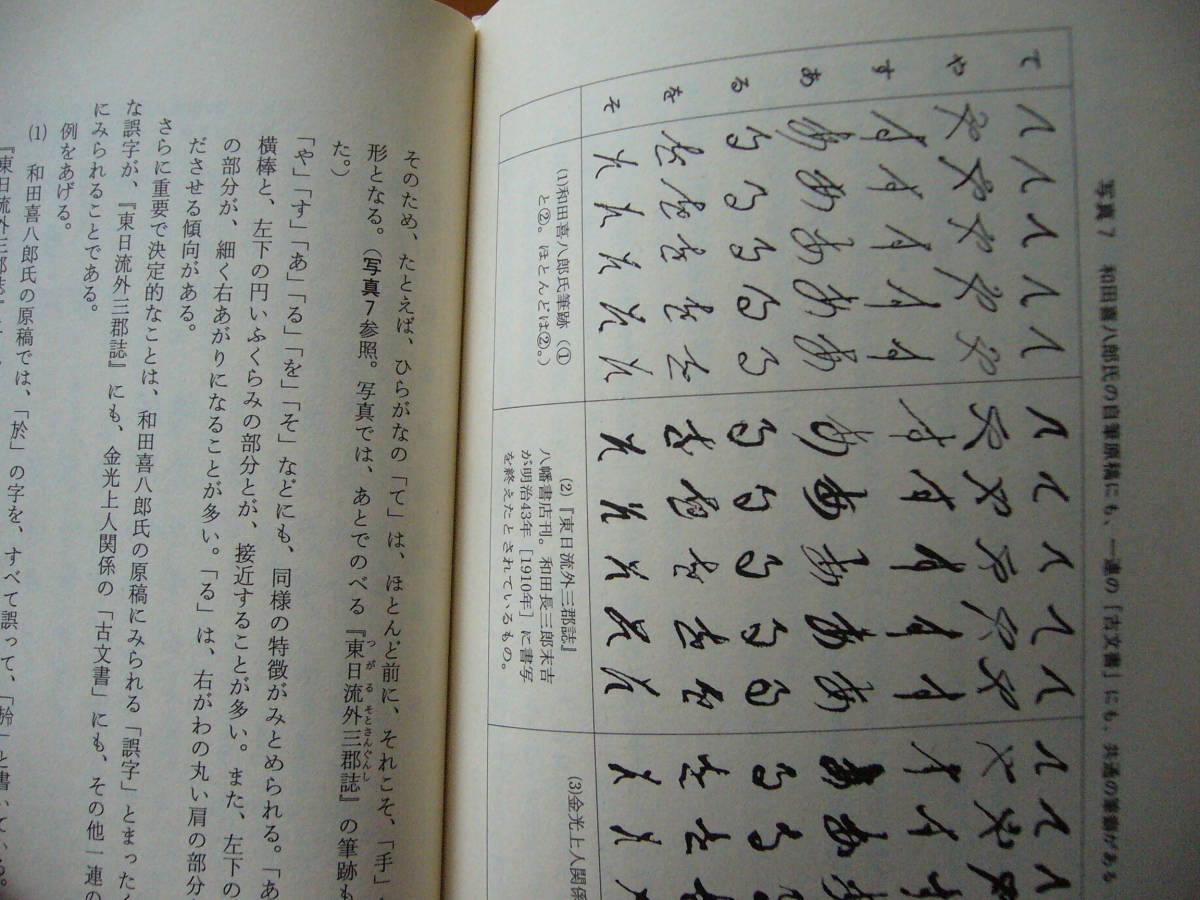 写真7 和田喜八郎氏の自筆原稿にも、一連の「古文書」にも、共通の筆癖がある
て
や
す
あ
る
を
そ
(1)和田喜八郎氏筆跡(①
と②。ほとんどは②。)
(2)『東日流外三郡誌』
八幡書店刊。和田長三郎末吉
が明治43年[1910年]に書写
を終えたとされているもの。
(3)金光上人関係
そのため、たとえば、ひらがなの「て」は、ほとんど前に、それこそ、「手」
形となる。(写真7参照。写真では、あとでのべる『東日流外三郡誌』の筆跡も
つがるそとさんぐんし
た。)
「や」「す」「あ」「る」「を」「そ」などにも、同様の特徴がみとめられる。「あ
横棒と、左下の円いふくらみの部分とが、接近することが多い。また、左下の
の部分が、細く右あがりになることが多い。「る」は、右がわの丸い肩の部分
ださせる傾向がある。
さらに重要で決定的なことは、和田喜八郎氏の原稿にみられる「誤字」とまった
な誤字が、『東日流外三郡誌』にも、金光上人関係の「古文書」にも、その他一連の
にみられることである。
例をあげる。
(1) 和田喜八郎氏の原稿では、「於」の字を、すべて誤って、「
『東日流外三郡誌』